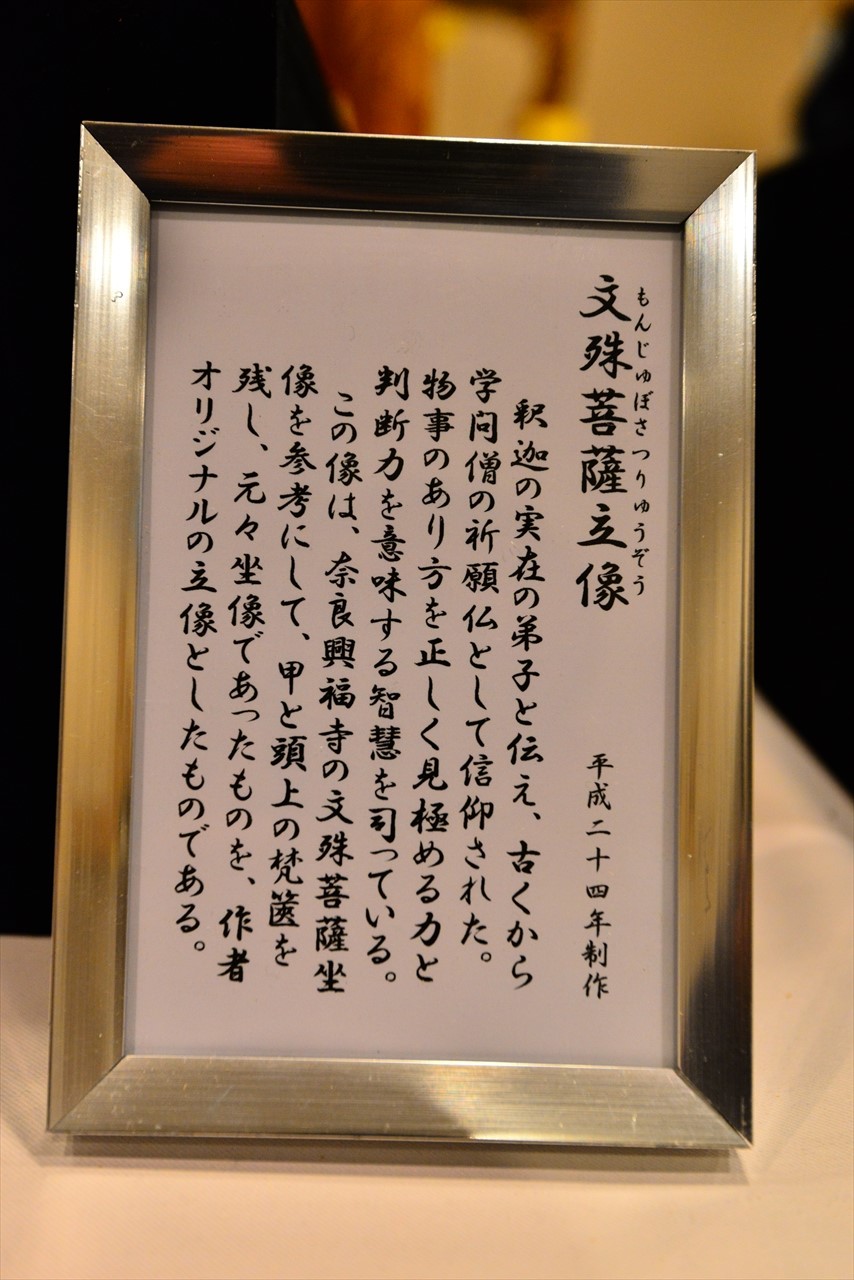 もんじゅぼさつりゅうぞう
文殊菩薩立像
平成二十四年制作
釈迦の実在の弟子と伝え、古くから
学問僧の祈願仏として信仰された。
物事のあり方を正しく見極める力と
判断力を意味する智慧を司っている。
この像は、奈良興福寺の文殊菩薩坐
像を参考にして、甲と頭上の梵篋を
残し、元々坐像であったものを、作者
オリジナルの立像としたものである。